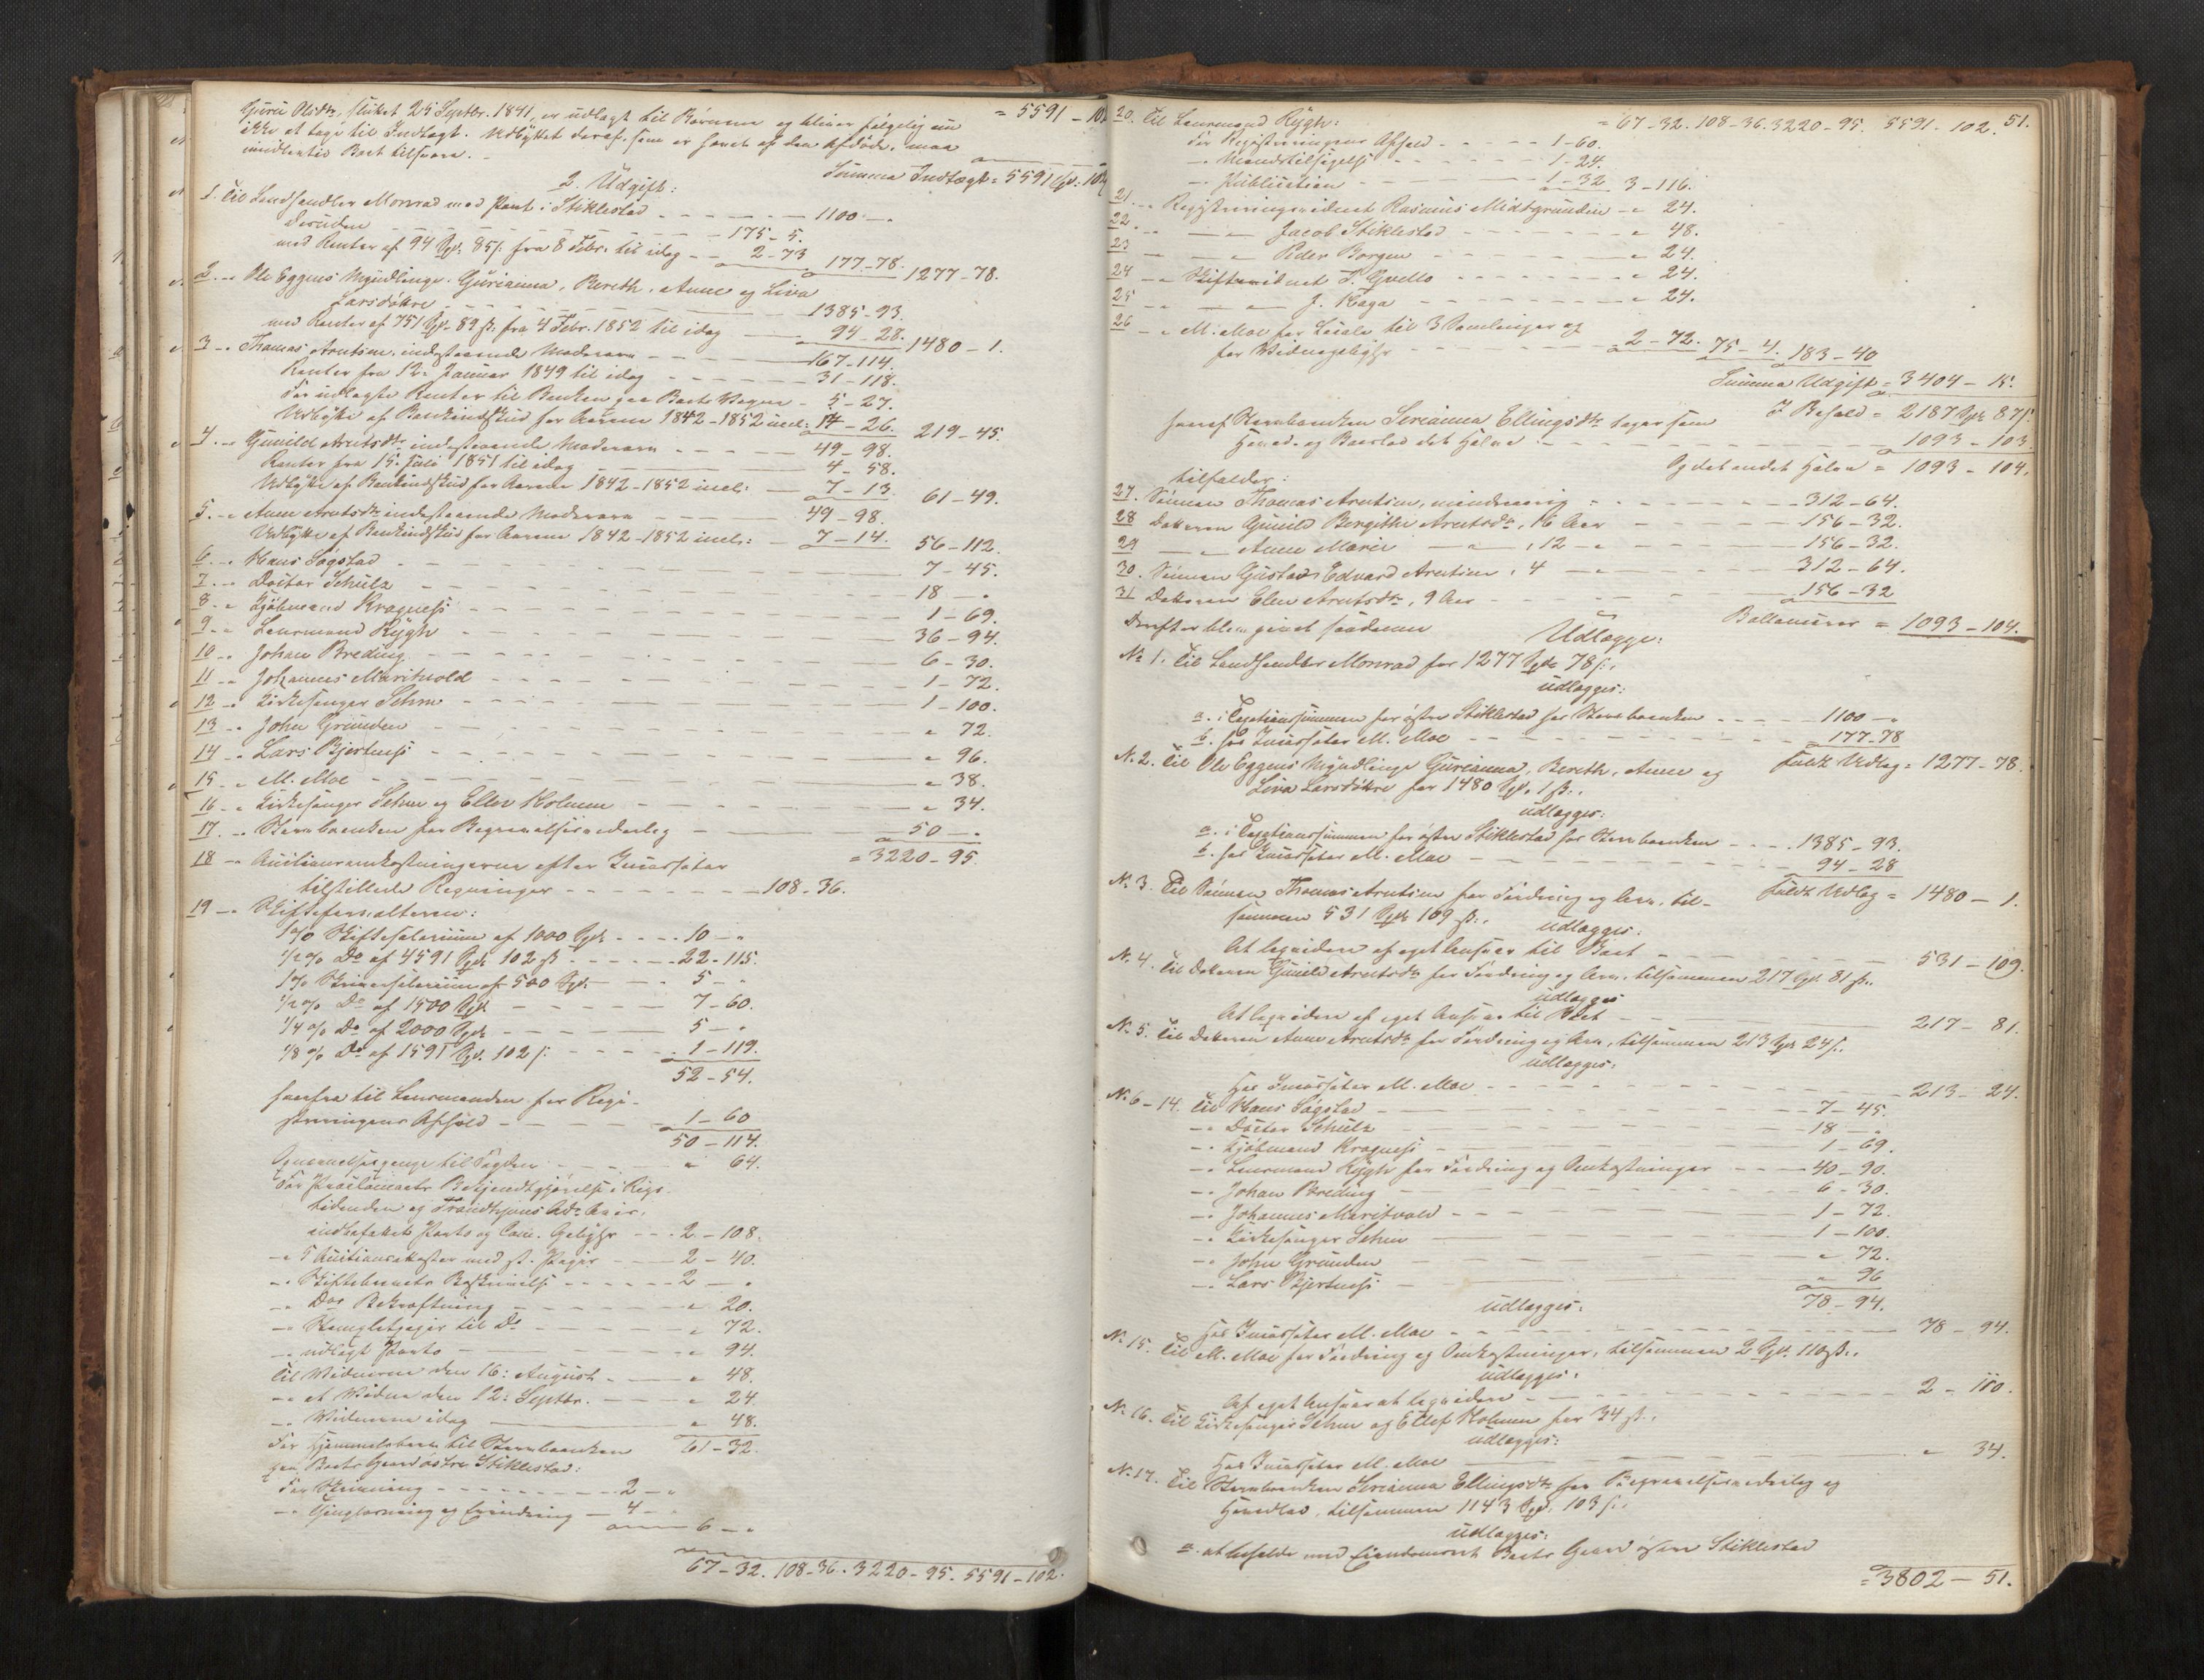 Guru Olsdtr, skiftet 25 Septbr. 1841, er udlagt til Börnene og bliver følgelig ei = 5591 – 102
ikke at tage til Indtægt. Udbyttet deraf, som er hævet af den Afdöde, maa
imidlertid Boet tilsvare.
Summa Indtægt = 5591 Spd. 102
2. Udgift:
1. Til Landhandler Monrad med Pant i Stiklestad 1100 – "
desuden 175 – 5.
med Renter af 94 Spd. 85 s. fra 8 Febr. til idag 2 – 73 177 – 78. 1277 – 78.
2 – " Ole Eggens Myndlinge Gurianna, Bereth, Anne og Liva
Larsdöttre 1385 – 93.
med Renter af 751 Spd. 89 s. fra 4 Febr. 1852 til idag 94 – 28. 1480 – 1.
3 – " Thomas Arntsen, indestaaende Mødrearv 167 – 114.
Renter fra 12. Januar 1849 til idag 31 – 118.
For udlagte Renter til Banken paa Boets Vegne 5 – 27.
Udbytte af Bankindskud for Aarene 1842 – 1852 incl: 14 – 26. 219 – 45.
4 – " Gunild Arntsdtr indestaaende Mødrearv 49 – 98.
Renter fra 15. Juli 1851 til idag 4 – 58.
Udbytte af Bankindskud for Aarene 1842 – 1852 incl: 7 – 13. 61 – 49.
5 – " Anne Arntsdtr indestaaende Mødrearv 49 – 98.
Udbytte af Bankindskud for Aarene 1842 – 1852 incl: 7 – 14. 56 – 112.
6 – " Hans Søgstad 7 – 45.
7 – " Doctor Schulz 18 – "
8 – " Kjöbmand Kragness 1 – 69.
9 – " Lensmand Rygh 36 – 94.
10 – " Johan Breding 6 – 30.
11 – " Johannes Maritvold 1 – 72.
12 – " Kirkesanger Sehm 1 – 100.
13 – " John Grunden " 72.
14 – " Lars Bjertness " 96.
15 – " M. Moe " 38.
16 – " Kirkesanger Sehm og Ellev Holmen " 34.
17 – " Stervboenken for Begravelsesvederlag 50 – "
= 3220 – 95.
18 – " Auctionsomkostningerne efter Incassator
tilstillede Regninger 108 – 36.
19 – " Skifteforvalteren:
1 % Skiftesalarium af 1000 Spd. 10 – "
1/2 % Do af 4591 Spd. 102 s 22 – 115.
1 % Skriversalarium af 500 Spd. 5 – "
1/2 % Do af 1500 Spd. 7 – 60.
1/4 % Do af 2000 Spd. 5 – "
1/8 % Do af 1591 Spd. 102 s. 1 – 119.
52 – 54.
herfra til Lensmanden for Regi-
streringens Afhold 1 – 60
50 – 114.
til Fogden " 64.
For Proclamaets Bekjendtgjörelse i Rigs-
tidenden og Trondhjems Adr. Avis,
indbefattet Porto og Com. Gebyhr 2 – 108.
– " 5 med st. Papir 2 – 40.
– " Skiftebrevets Beskrivelse 2 – "
– " Dos Bekræftning " 20.
– " Stemplet papir til Do " 72.
– " udlagt Porto " 94.
Til Vidnerne den 16: August " 48.
– " et Vidne den 12: Septbr. " 24.
– " Vidnerne idag " 48.
61 – 32.
For Hjemmelsbrev til Stervboenken
paa Boets Gaard østre Stiklestad:
For Skrivning 2 – "
– " Thinglæsning og 4 – "
6 – "
67 – 32. 108 – 36. 3220 – 95. 5591 – 102.
51.
= 67 – 32. 108 – 36. 3220 – 95. 5591. 102.
20. Til Lensmand Rygh:
For Registreringens Afhold 1 – 60.
– " Mandstilsigelse 1 – 24.
– " Publication 1 – 32 3 – 116.
21. – " Registreringsvidnet Rasmus Midtgrunden " 24.
22. – " Jacob Stiklestad " 48.
23 – " Peder Borgen " 24.
24 – " Skiftevidnet P. Qvello " 24.
25 – " J. Haga " 24.
26 – " M. Moe for Locale til 3 Samlinger og
for Vidnegebyhr 2 – 72. 75 – 4. 183 – 40
Summa Udgift = 3404 – 15.
I Behold = 2187 Spd. 87 s.
heraf Stervboenken Serianna Ellingsdtr tager som
Hoved- og Boeslod det Halve 1093 – 103.
Og det andet Halve = 1093 – 104.
tilfalder:
27. Sönnen Thomas Arntsen, mindreaarig 312 – 64.
28 Datteren Gunild Bergithe Arntsdtr, 16 Aar 156 – 32.
29 – " Anne Marie – " , 12 – " 156 – 32.
30. Sönnen Gustav Edvard Arntsen, 4 – " 312 – 64.
31 Datteren Elen Arntsdtr, 9 Aar 156 – 32
Ballancerer = 1093 – 104.
Derefter blev givet saadanne
Udlægge:
No 1. Til Landhandler Monrad for 1277 Spd. 78 s.,
udlægges:
a. i Taxationssummen for østre Stiklestad hos Stervboenken 1100 – "
b. hos Incassator M. Moe 177 – 78
Fuldt Udlæg = 1277 – 78.
N. 2. Til Ole Eggens Myndlinge Gurianna, Bereth, Anne og
Liva Larsdöttre for 1480 Spd. 1 s.,
udlægges:
a. i Taxationssummen for østre Stiklestad hos Stervboenken 1385 – 93.
b. hos Incassator M. Moe 94 – 28
Fuldt Udlæg = 1480 – 1.
No 3. Til Sönnen Thomas Arntsen for Fordring og Arv, til-
sammen 531 Spd. 109 s., udlægges:
At liqvidere af eget Ansvar til Boet 531 – 109.
No 4. Til Datteren Gunild Arntsdtr for Fordring og Arv, tilsammen 217 Spd. 81 s.,
udlægges
At liqvidere af eget Ansvar til Boet 217 – 81.
No 5. Til Datteren Anne Arntsdtr for Fordring og Arv, tilsammen 213 Spd 24 s.,
udlægges:
Hos Incassator M. Moe 213 – 24.
No 6 – 14. Til Hans Søgstad 7 – 45.
– " Doctor Schulz 18 – "
– " Kjöbmand Kragness 1 – 69.
– " Lensmand Rygh for Fordring og Omkostninger 40 – 90.
– " Johan Breding 6 – 30.
– " Johannes Maritvold 1 – 72.
– " Kirkesanger Sehm 1 – 100.
– " John Grunden " 72.
– " Lars Bjertness " 96
78 – 94.
udlægges:
Hos Incassator M. Moe 78 – 94.
No 15. Til M. Moe for Fordring og Omkostninger, tilsammen 2 Spd. 110 s.,
udlægges:
Af eget Ansvar at liqvidere 2 – 110.
No 16. Til Kirkesanger Sehm og Ellef Holmen for 34 s.,
udlægges:
Hos Incassator M. Moe " 34.
No 17. Til Stervboenken Serianna Ellingsdtr for Begravelsesvederlag og
Hovedlod, tilsammen 1143 Spd. 103 s.,
udlægges:
a. at beholde med Eiendomsret Boets Gaard østre Stiklestad
= 3802 – 51.